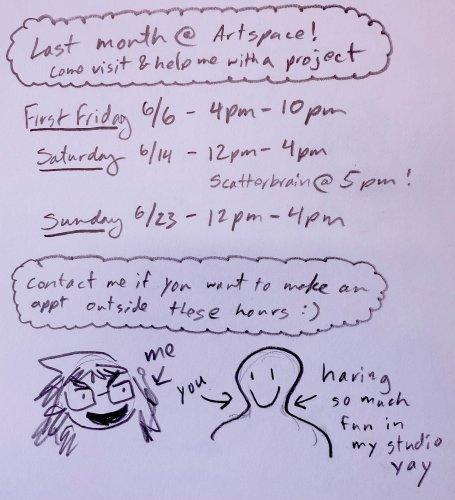 Last month @ Artspace!
come visit & help me with a project
First Friday 6/6 - 4pm - 10pm
Saturday 6/14 - 12pm - 4pm
Scatterbrain @ 5pm!
Sunday 6/23 - 12pm - 4pm
contact me if you want to make an
appt outside these hours :)
me
you
having
so much
fun in
my studio
yay